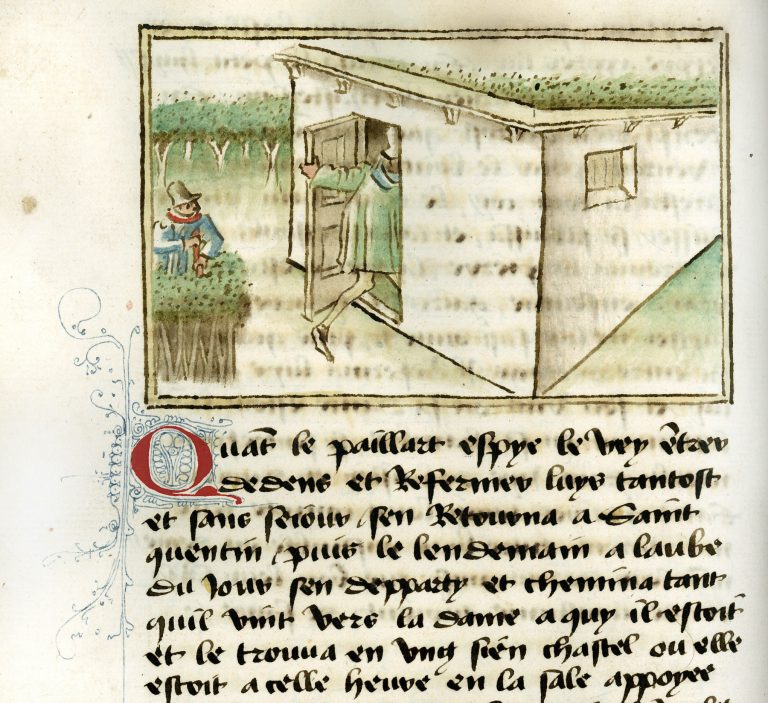 Quãt le paillart espye le vey ẽtrer
dedens et Refermer luys tantost
et sans seiour sen Retourna a Saint
quentin / puis le lendemain a laube
du Jour sen depparty et chemina tant
quil vint vers la dame a quy il estoit
et le trouva en ung sien chastel ou elle
estoit a celle heure en la sale appoyee